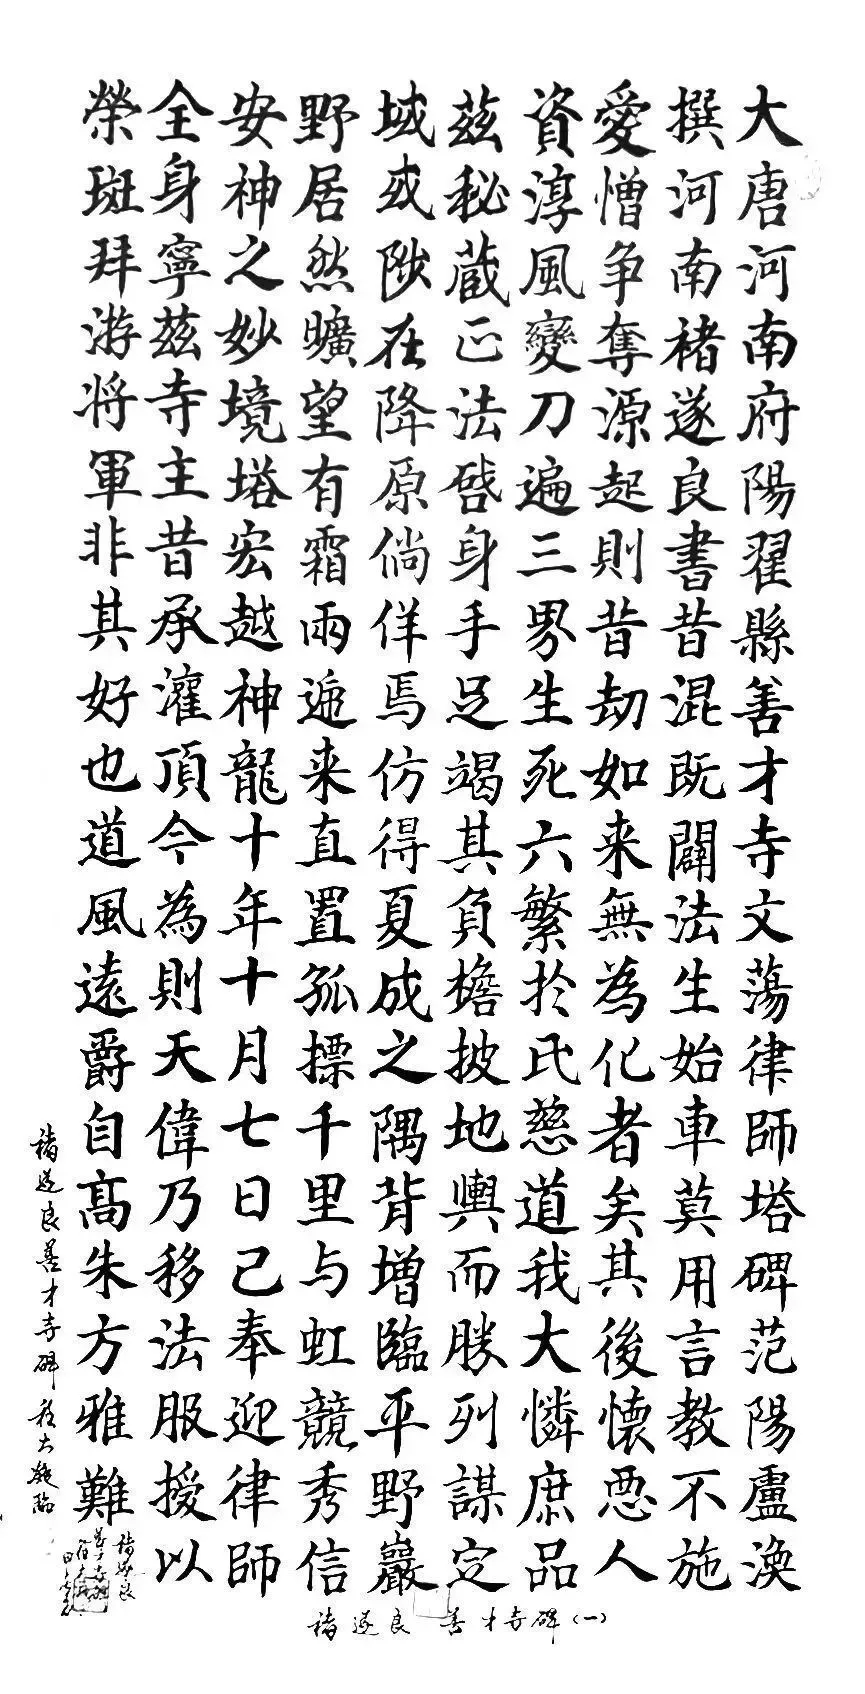 大唐河南府陽翟縣善才寺文蕩律師塔碑范陽盧渙
撰河南褚遂良書昔混既闢法生始車莫用言教不施
愛憎争奪源起則昔劫如来無為化者矣其後懐惡人
資淳風變刀遍三界生死六繁於氏慈道我大憐庶品
茲秘蔵正法啓身手足竭其負檐披地輿而勝列謀定
域或陟在降原倘佯焉仿得夏成之隅背增臨平野巖
野居然曠望有霜雨遞来直置孤摽千里与虹競秀信
安神之妙境塔宏越神龍十年十月七日己奉迎律師
全身寧茲寺主昔承灌頂今為則天偉乃移法服授以
榮斑拜游将軍非其好也道風遠爵自高朱方雅難
褚遂良善才寺碑
褚遂良 善才寺碑(一)